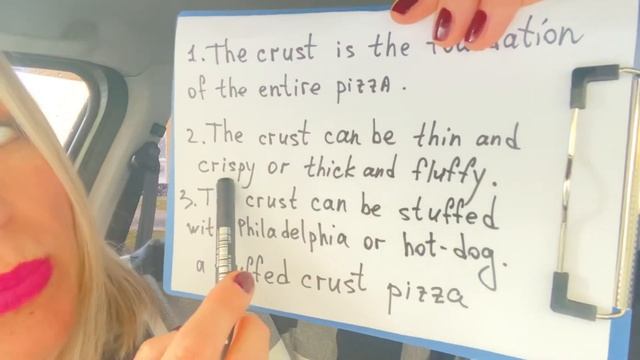 1. The crust is the foundation
of the entire pizzA.
2. The crust can be thin and
crispy or thick and fluffy.
3. The crust can be stuffed
with Philadelphia or hot-dog.
a stuffed crust pizza